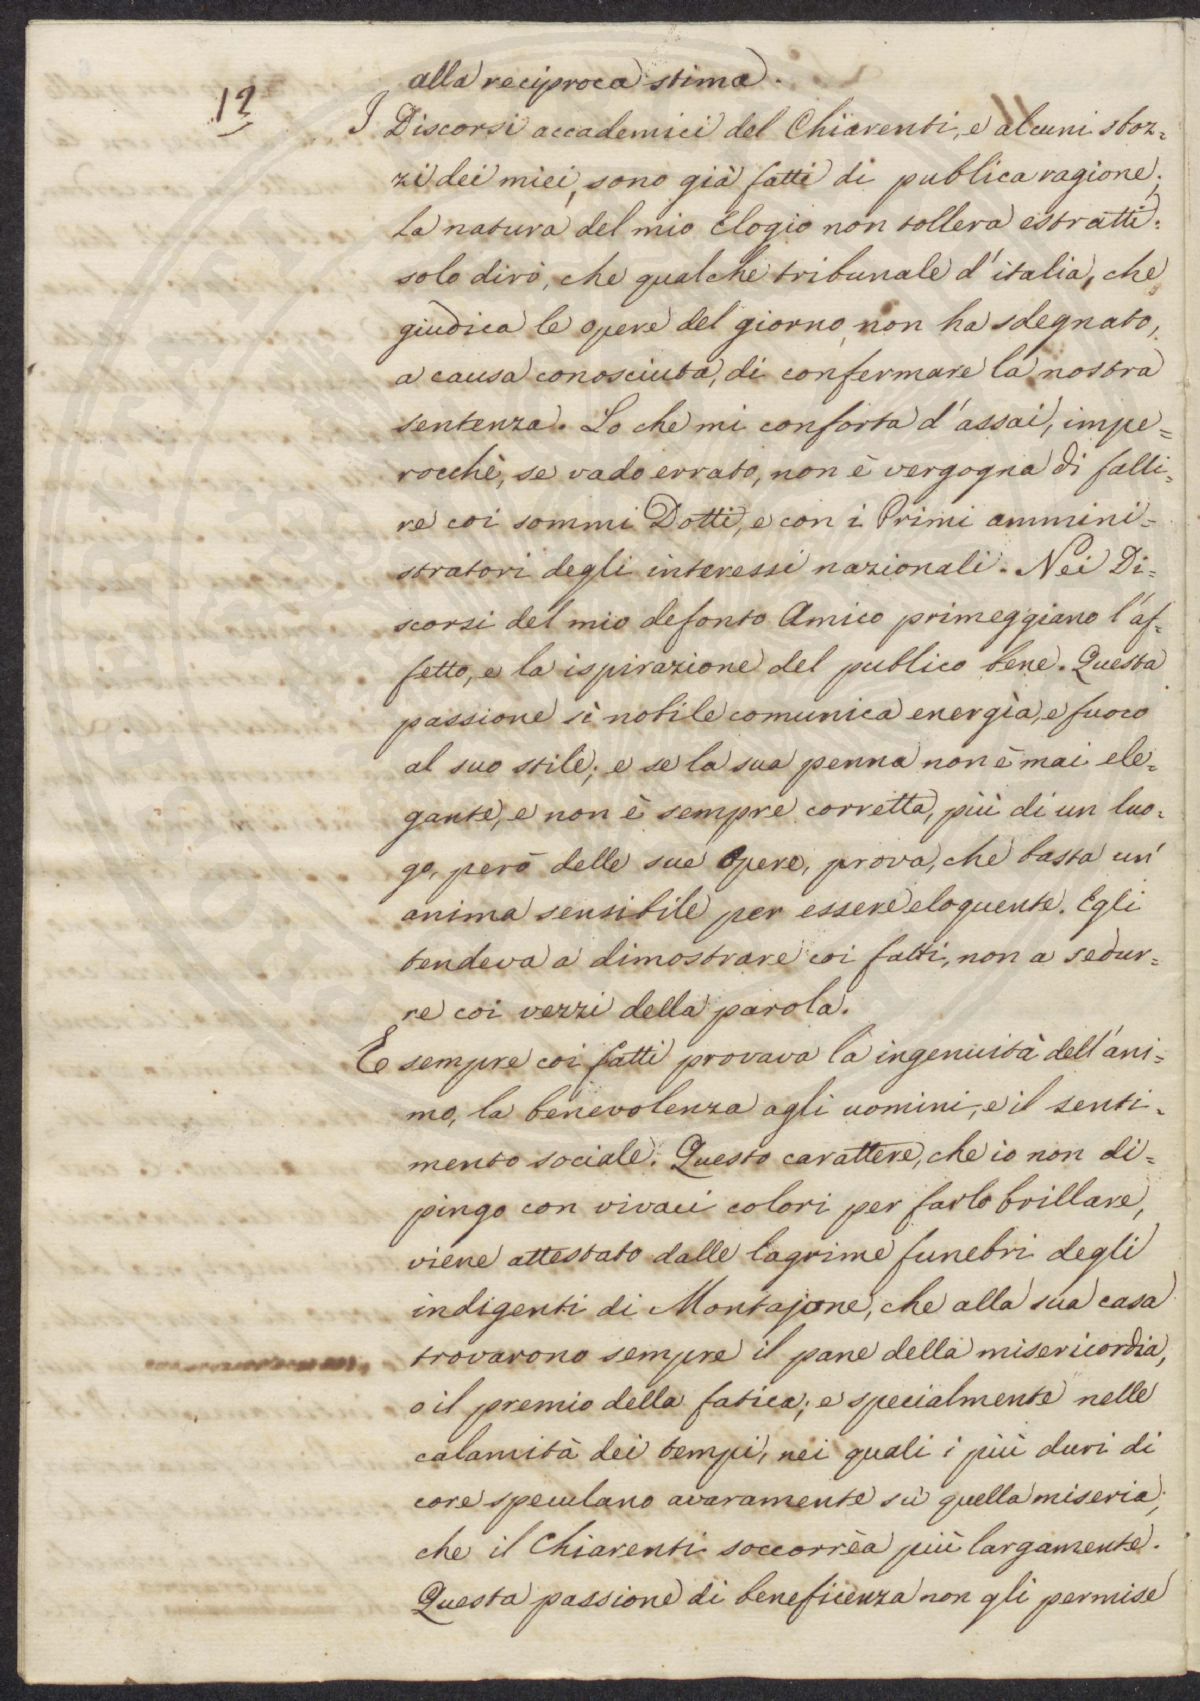 alla reciproca stima.
12
I Discorsi accademici del Chiarenti, e alcuni sboz=
zi dei miei, sono già fatti di publica ragione;
La natura del mio Elogio non tollera estratti:
solo dirò, che qualche tribunale d'italia, che
giudica le opere del giorno, non ha sdegnato,
a causa conosciuta, di confermare la nostra
sentenza. Lo che mi conforta d'assai, impe=
rocchè, se vado errato, non è vergogna di falli=
re coi sommi Dotti, e con i Primi ammini=
stratori degli interessi nazionali. Nei Di=
scorsi del mio defonto Amico primeggiano l'af=
fetto, e la ispirazione del publico bene. Questa
passione sì nobile comunica energìa, e fuoco
al suo stile; e se la sua penna non è mai ele=
gante, e non è sempre corretta, più di un luo=
go, però delle sue Opere, prova, che basta un'
anima sensibile per essere eloquente. Egli
tendeva a dimostrare coi fatti, non a sedur=
re coi vezzi della parola.
E sempre coi fatti provava la ingenuità dell'ani=
mo, la benevolenza agli uomini, e il senti=
mento sociale. Questo carattere, che io non di=
pingo con vivaci colori per farlo brillare,
viene attestato dalle lagrime funebri degli
indigenti di Montajone, che alla sua casa
trovarono sempre il pane della misericordia,
o il premio della fatica; e specialmente nelle
calamità dei tempi, nei quali i più duri di
core speculano avaramente sù quella miseria,
che il Chiarenti soccorrèa più largamente.
Questa passione di beneficenza non gli permise